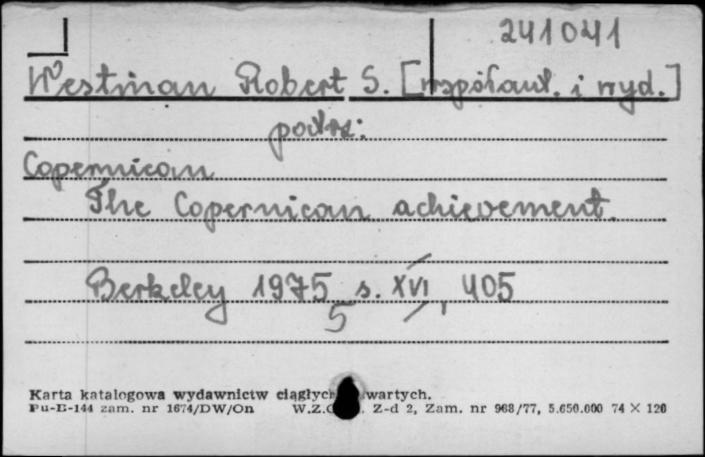 241041
Westman Robert S. [współaut. i wyd.]
patrz:
Copernican
The Copernican achievement.
Berkeley 1975 s. XVI, 405
5
Karta katalogowa wydawnictw ciągłych wartych.
Pu-B-144 zam. nr 1674/DW/On W.Z.G. Z-d 2, Zam. nr 968/77, 5.650.000 74 X 120